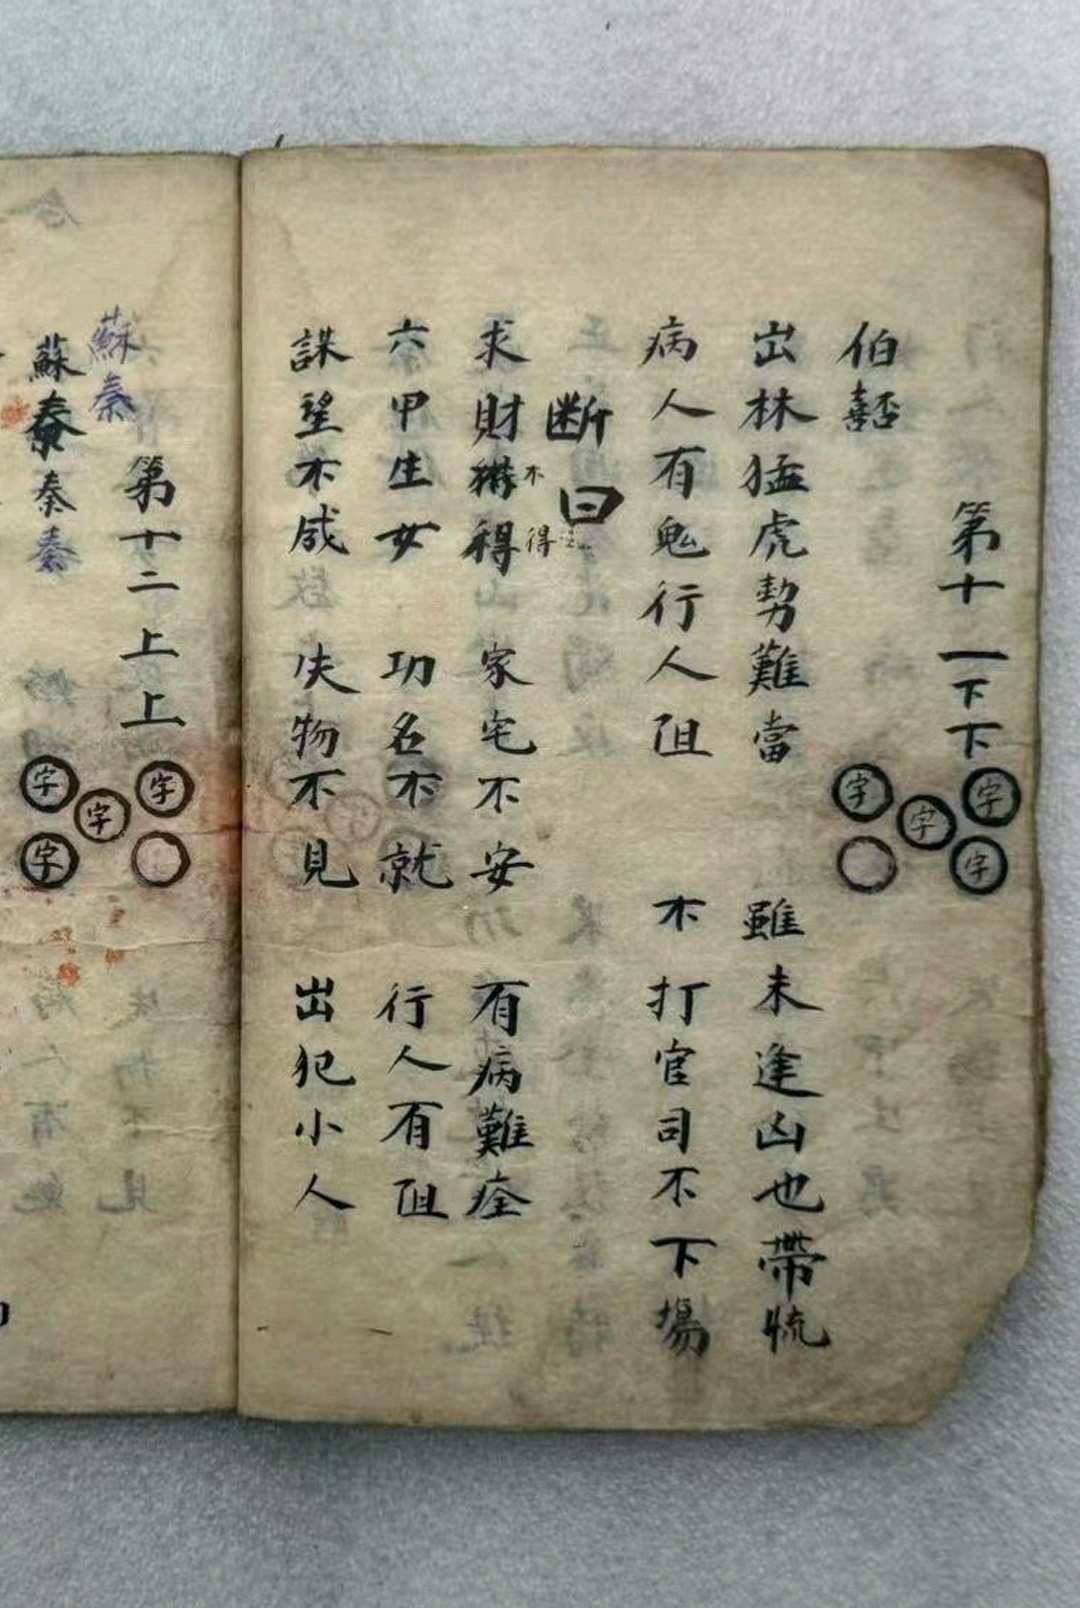 第十一下下
字 字 字 字
伯嚭
出林猛虎勢難當 雖未逢凶也帶慌
病人有鬼行人阻 不打官司不下場
断曰
不得
求財 得 家宅不安 有病難痊
六甲生女 功名不就 行人有阻
謀望不成 失物不見 出犯小人
第十二上上
字 字 字 字
蘇秦
蘇秦秦秦